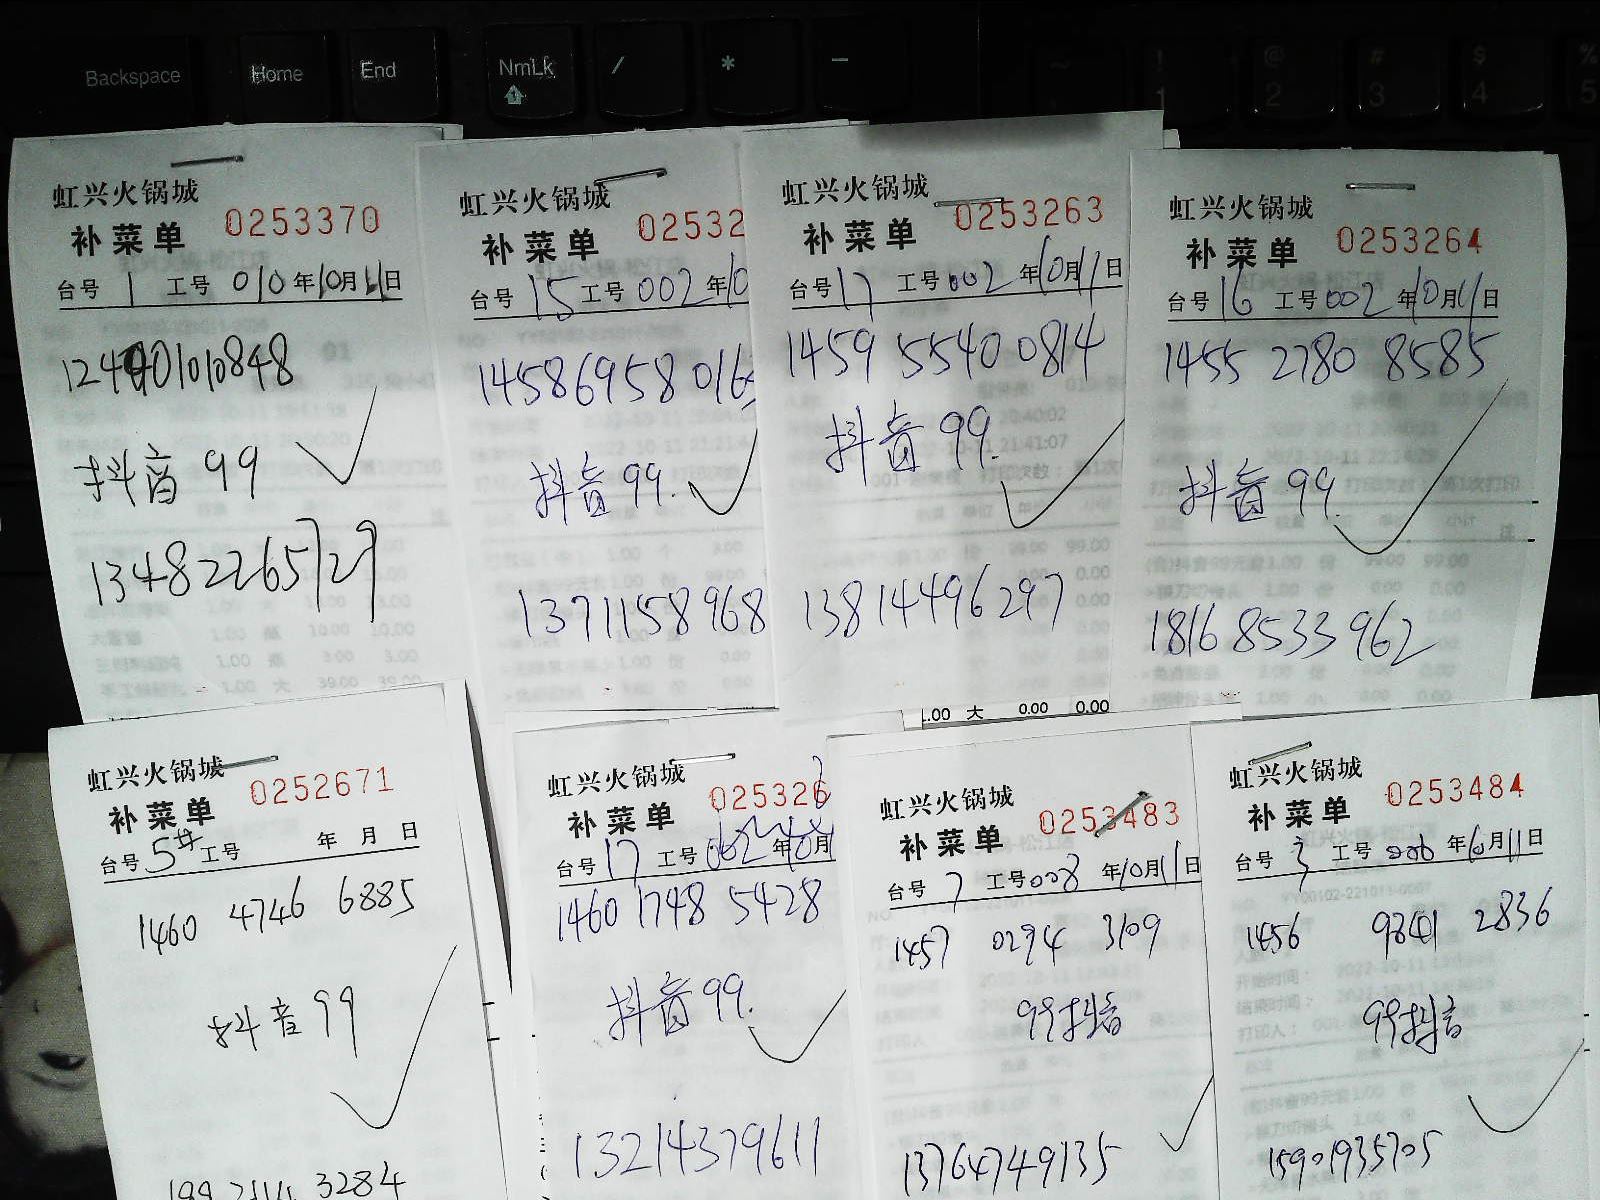 Backspace
Home
End
NmLk
/
*
-
虹兴火锅城
补菜单 0253370
台号 1 工号 010 年10月11日
抖音 99
13482265729
虹兴火锅城
补菜单 02532
台号 15 工号 002 年10
14586958016
抖音 99.
13711158968
虹兴火锅城
补菜单 0253263
台号 17 工号 002 年10月11日
1459 5540 0814
抖音 99.
13814496297
虹兴火锅城
补菜单 0253264
台号 16 工号 002 年10月11日
1455 2780 8585
抖音 99.
18168533962
1.00 大 0.00 0.00
虹兴火锅城
补菜单 0252671
台号 5# 工号 年 月 日
1460 4746 6885
抖音 99
3284
虹兴火锅城
补菜单 025326
台号 17 工号 002 年10月
1460 1748 5428
抖音 99.
13214379611
虹兴火锅城
补菜单 0253483
台号 7 工号 008 年10月11日
1457 0294 3109
99抖音
13764749135
虹兴火锅城
补菜单 0253484
台号 3 工号 年10月11日
1456 2836
99抖音
15901935705